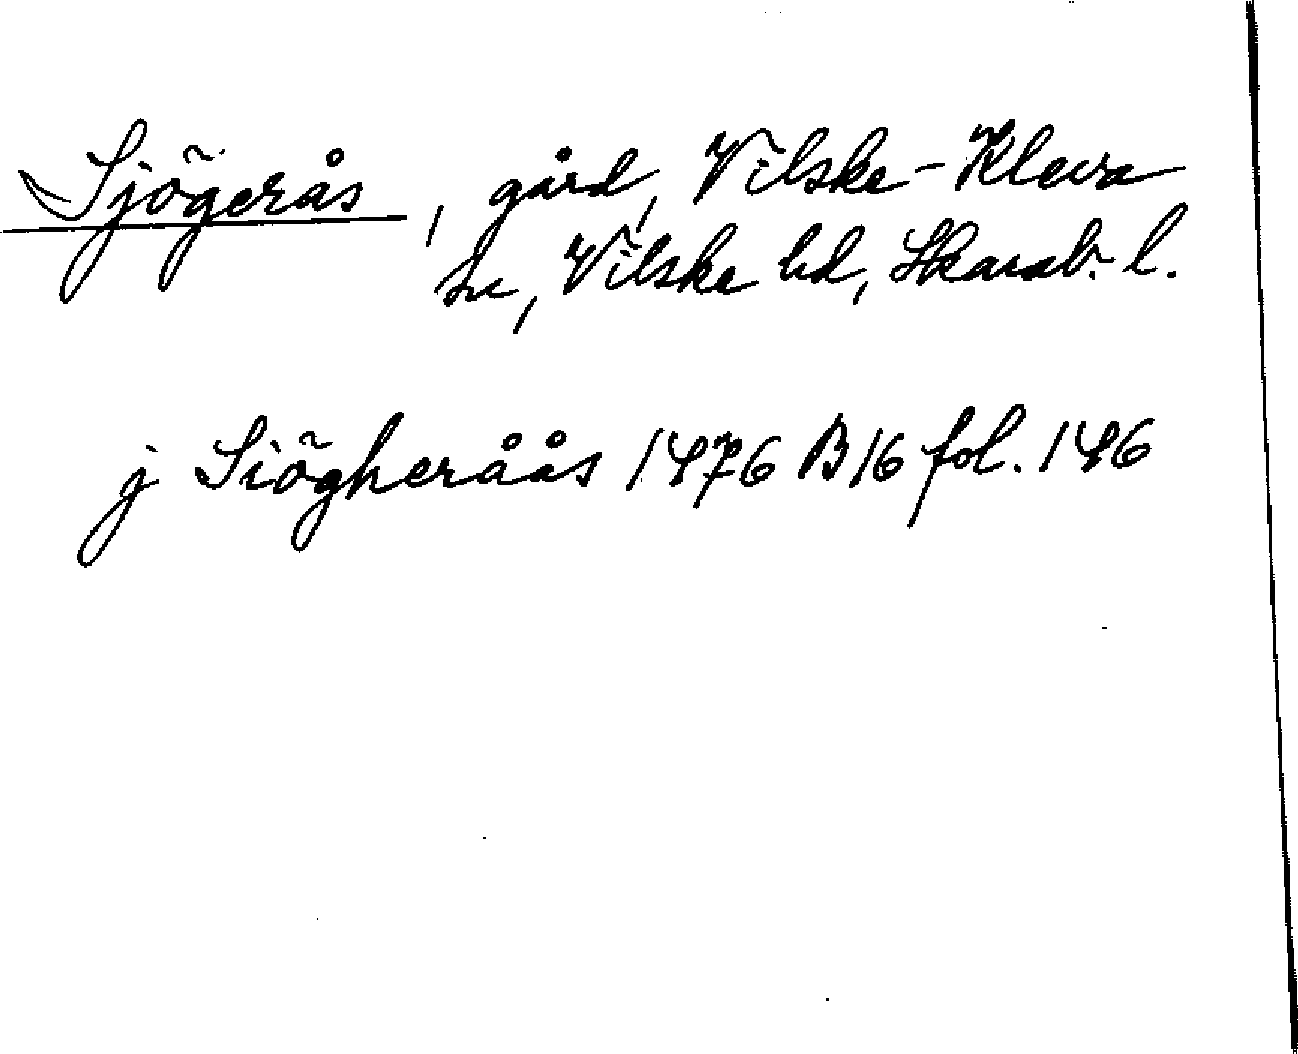 Sjögerås, gård, Vilske-Kleva
sn, Vilske hd, Skarab. l.
j Siögheråås 1476 B16 fol. 146